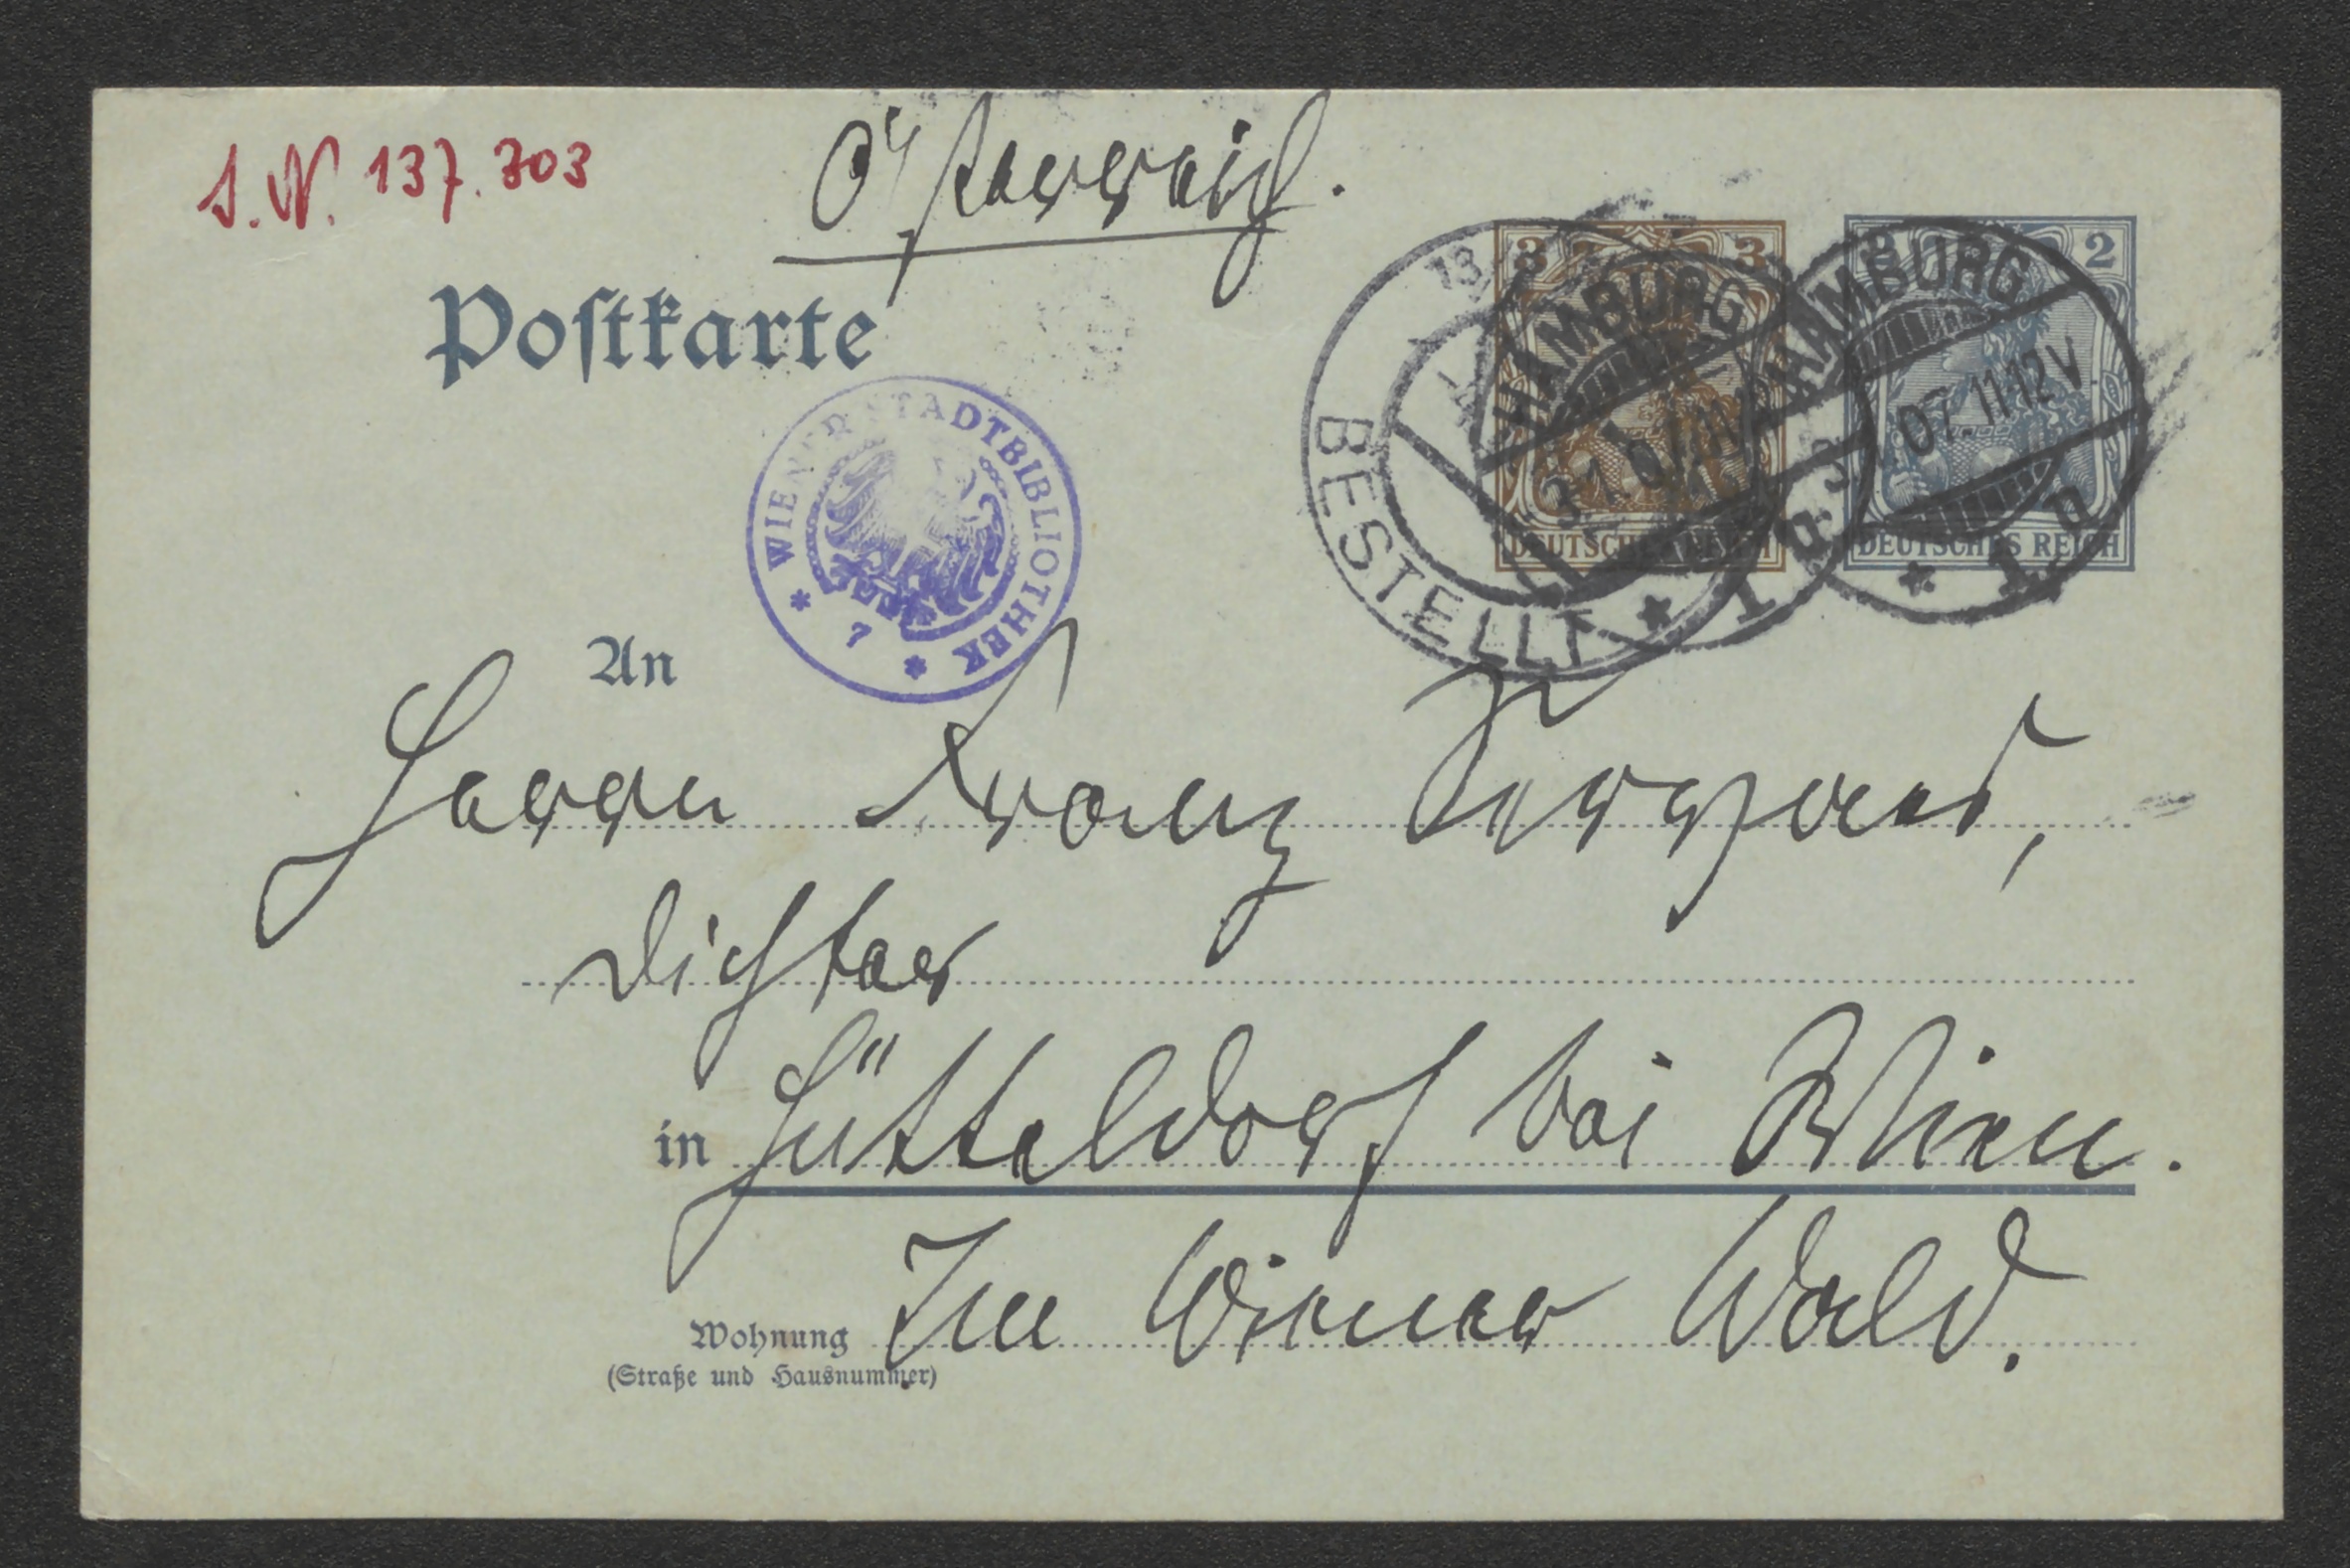 I. N. 137.303
Österreich.
Postkarte
3 3
2 2
DEUTSCHES REICH
DEUTSCHES REICH
HAMBURG
HAMBURG
07.11-12V
* 1 n
BESTELLT
WIENER STADTBIBLIOTHEK
* 7 *
An
Herrn Franz
Dichter
in Hütteldorf bei Wien.
Wohnung Im Wiener Wald.
(Straße und Hausnummer)